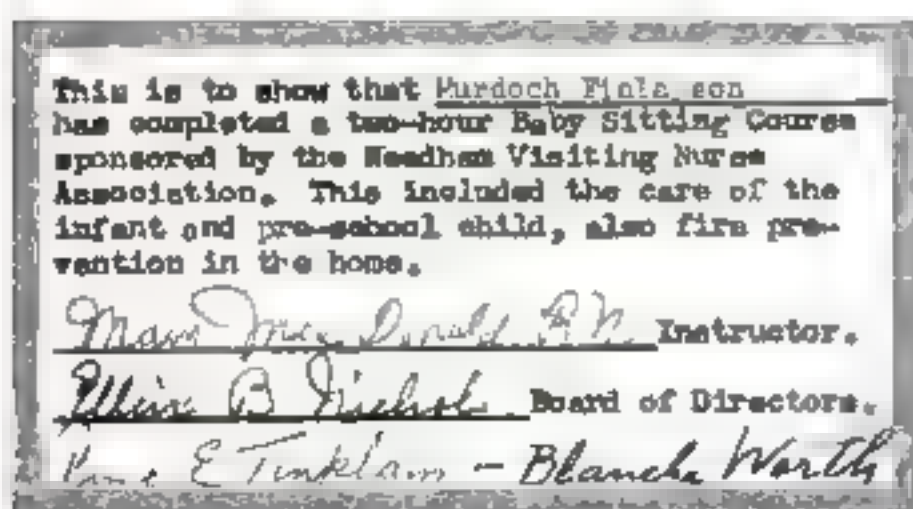 This is to show that Murdoch Finla son
has completed a two-hour Baby Sitting Course
sponsored by the Needham Visiting Nurse
Association. This included the care of the
infant and pre-school child, also fire pre-
vention in the home.
Mac Donald R.N. Instructor.
B Nichols Board of Directors.
E Tinkham - Blanche Worth